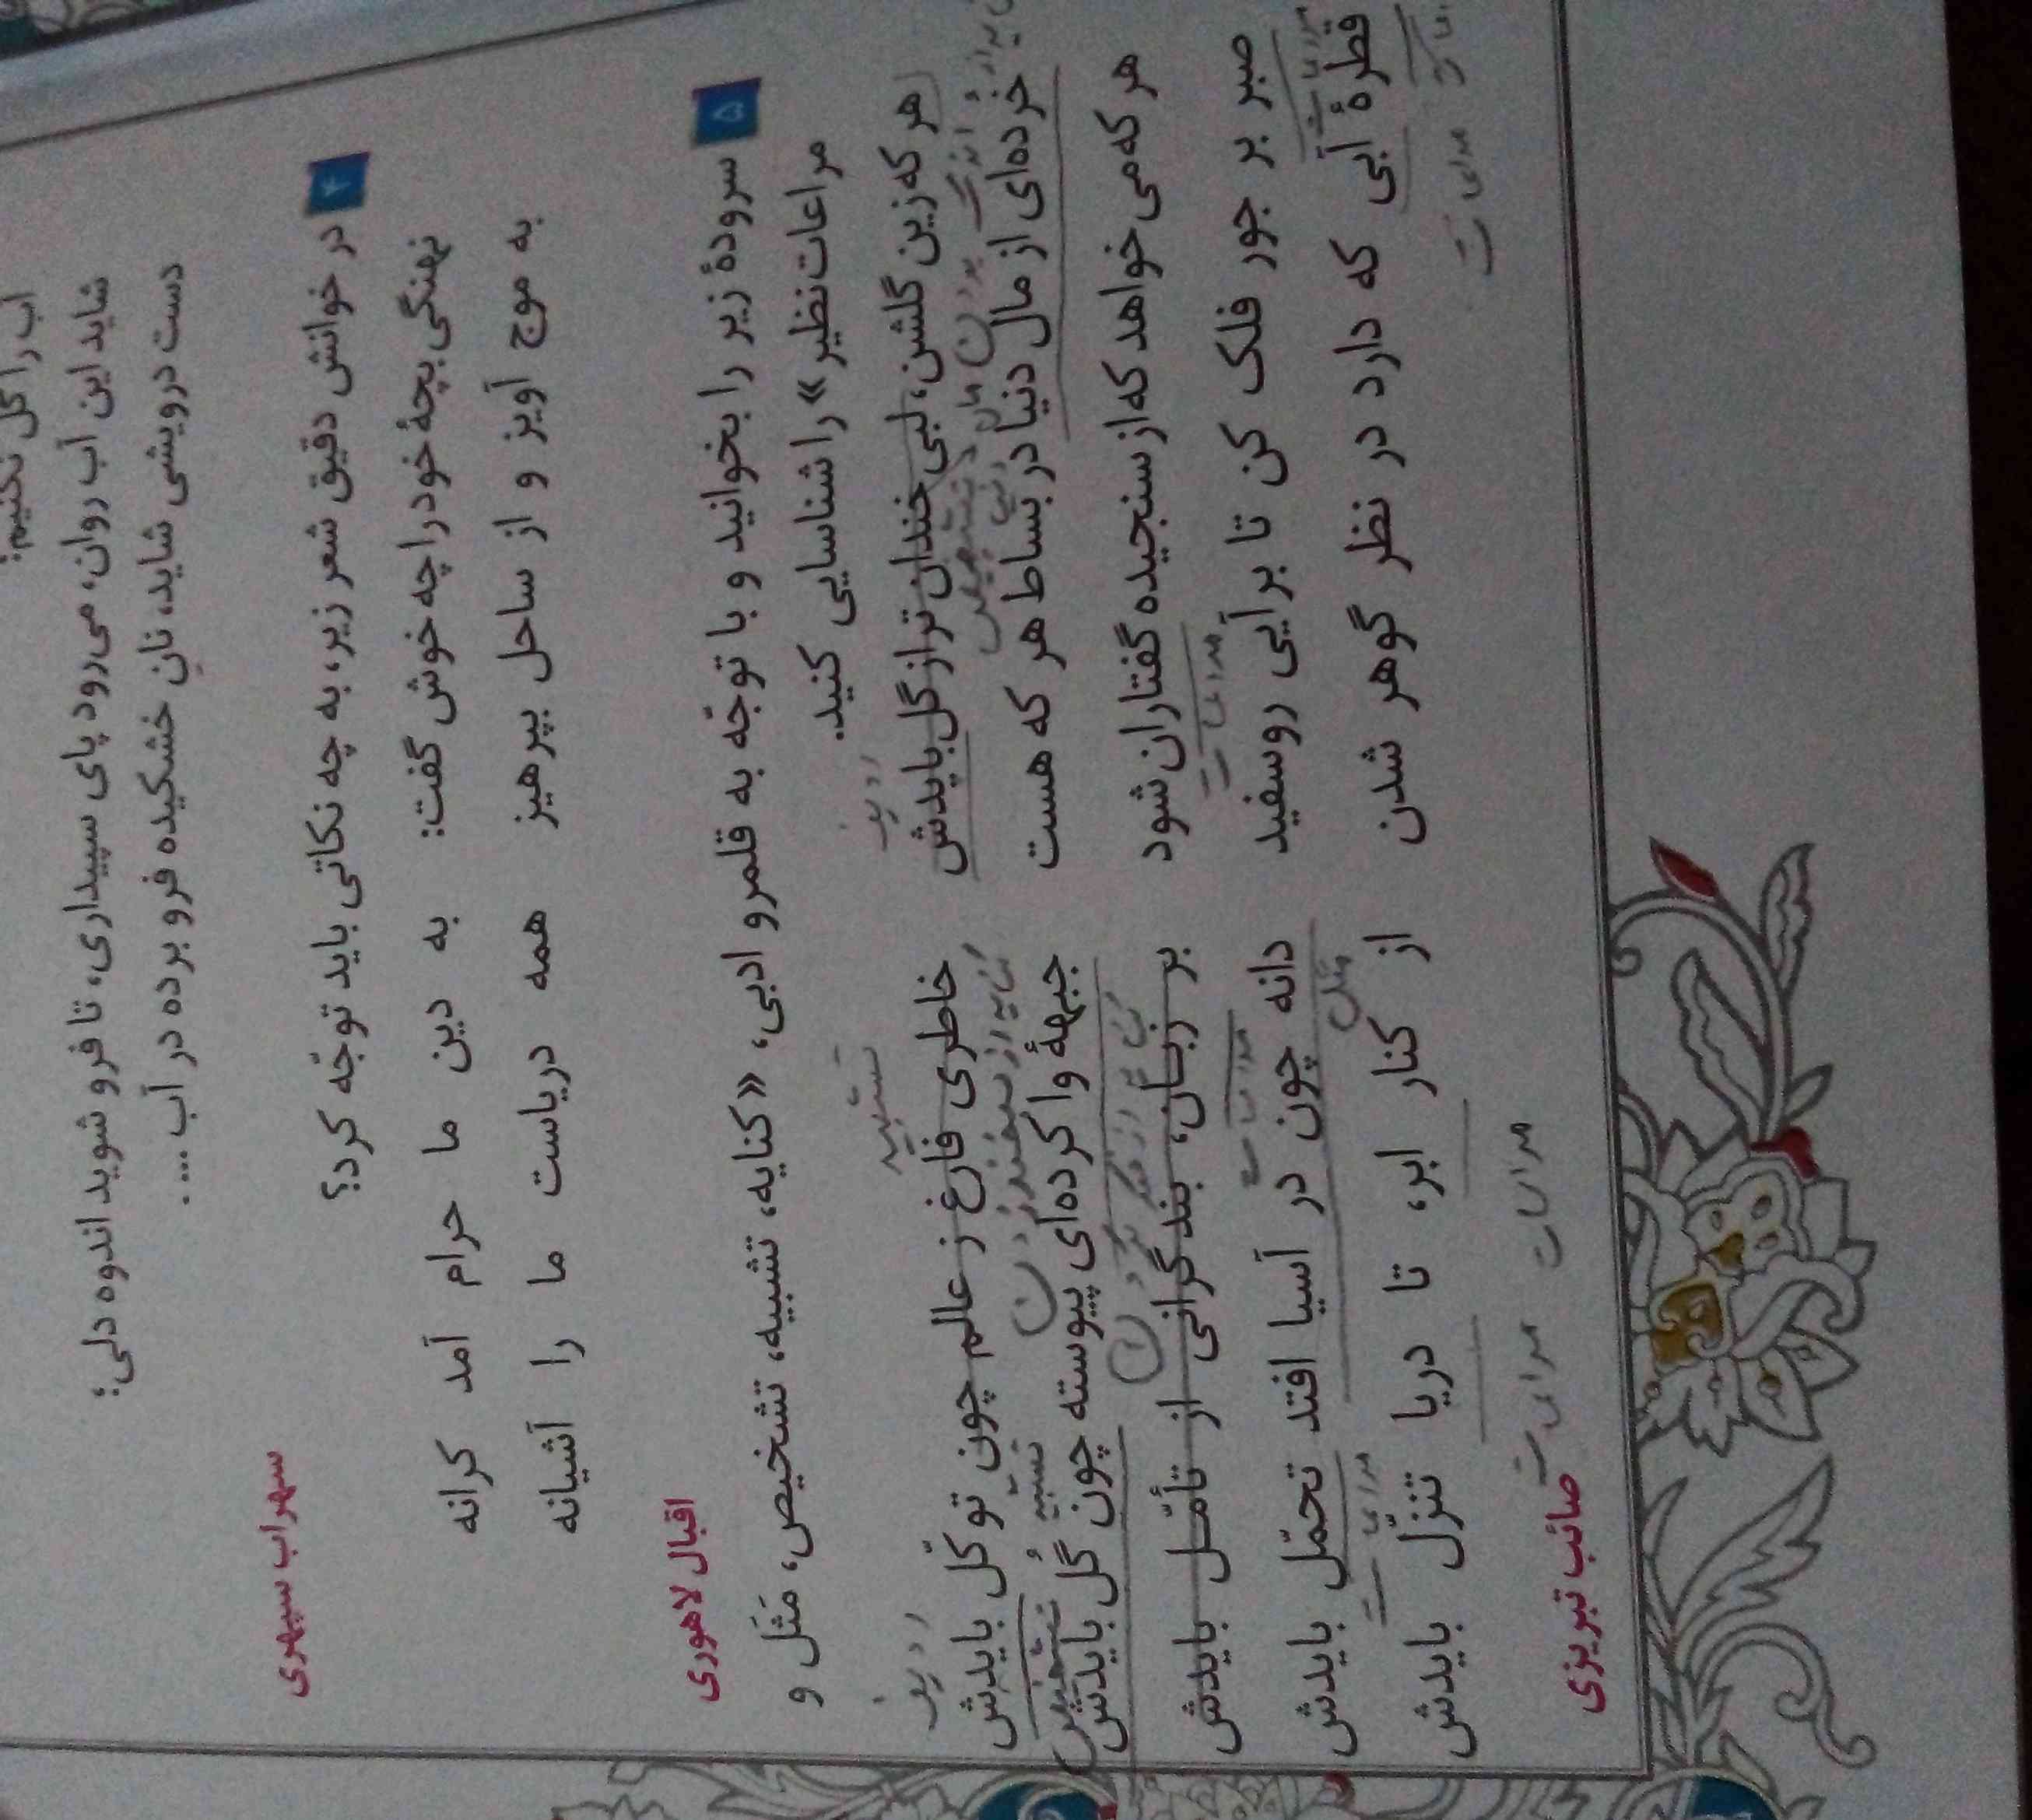 آب را گل نکنیم:
شاید این آب روان، می‌رود پای سپیداری، تا فرو شوید اندوه دلی؛
دست درویشی شاید، نان خشکیده فرو برده در آب ... .
سهراب سپهری
۴ در خوانش دقیق شعر زیر، به چه نکاتی باید توجّه کرد؟
نهنگی بچهٔ خود را چه خوش گفت: به دین ما حرام آمد کرانه
به موج آویز و از ساحل بپرهیز همه دریاست ما را آشیانه
اقبال لاهوری
۵ سرودهٔ زیر را بخوانید و با توجّه به قلمرو ادبی، «کنایه، تشبیه، تشخیص، مَثَل و
مراعات نظیر» را شناسایی کنید.
ردیف تشبیه ردیف
هر که زین گلشن، لبی خندان تر از گل بایدش خاطری فارغ ز عالم چون توکّل بایدش
تشخیص تشبیه تشخیص
خرده‌ای از مال دنیا در بساط هر که هست جبههٔ واکرده‌ای پیوسته چون گل بایدش
هر که می‌خواهد که از سنجیده گفتاران شود بر زبان، بند گرانی از تأمّل بایدش
مراعات مراعات
صبر بر جور فلک کن تا برآیی روسفید دانه چون در آسیا افتد تحمّل بایدش
مثل مراعات
قطرهٔ آبی که دارد در نظر گوهر شدن از کنار ابر، تا دریا تنزّل بایدش
مراعات مراعات مراعات
صائب تبریزی